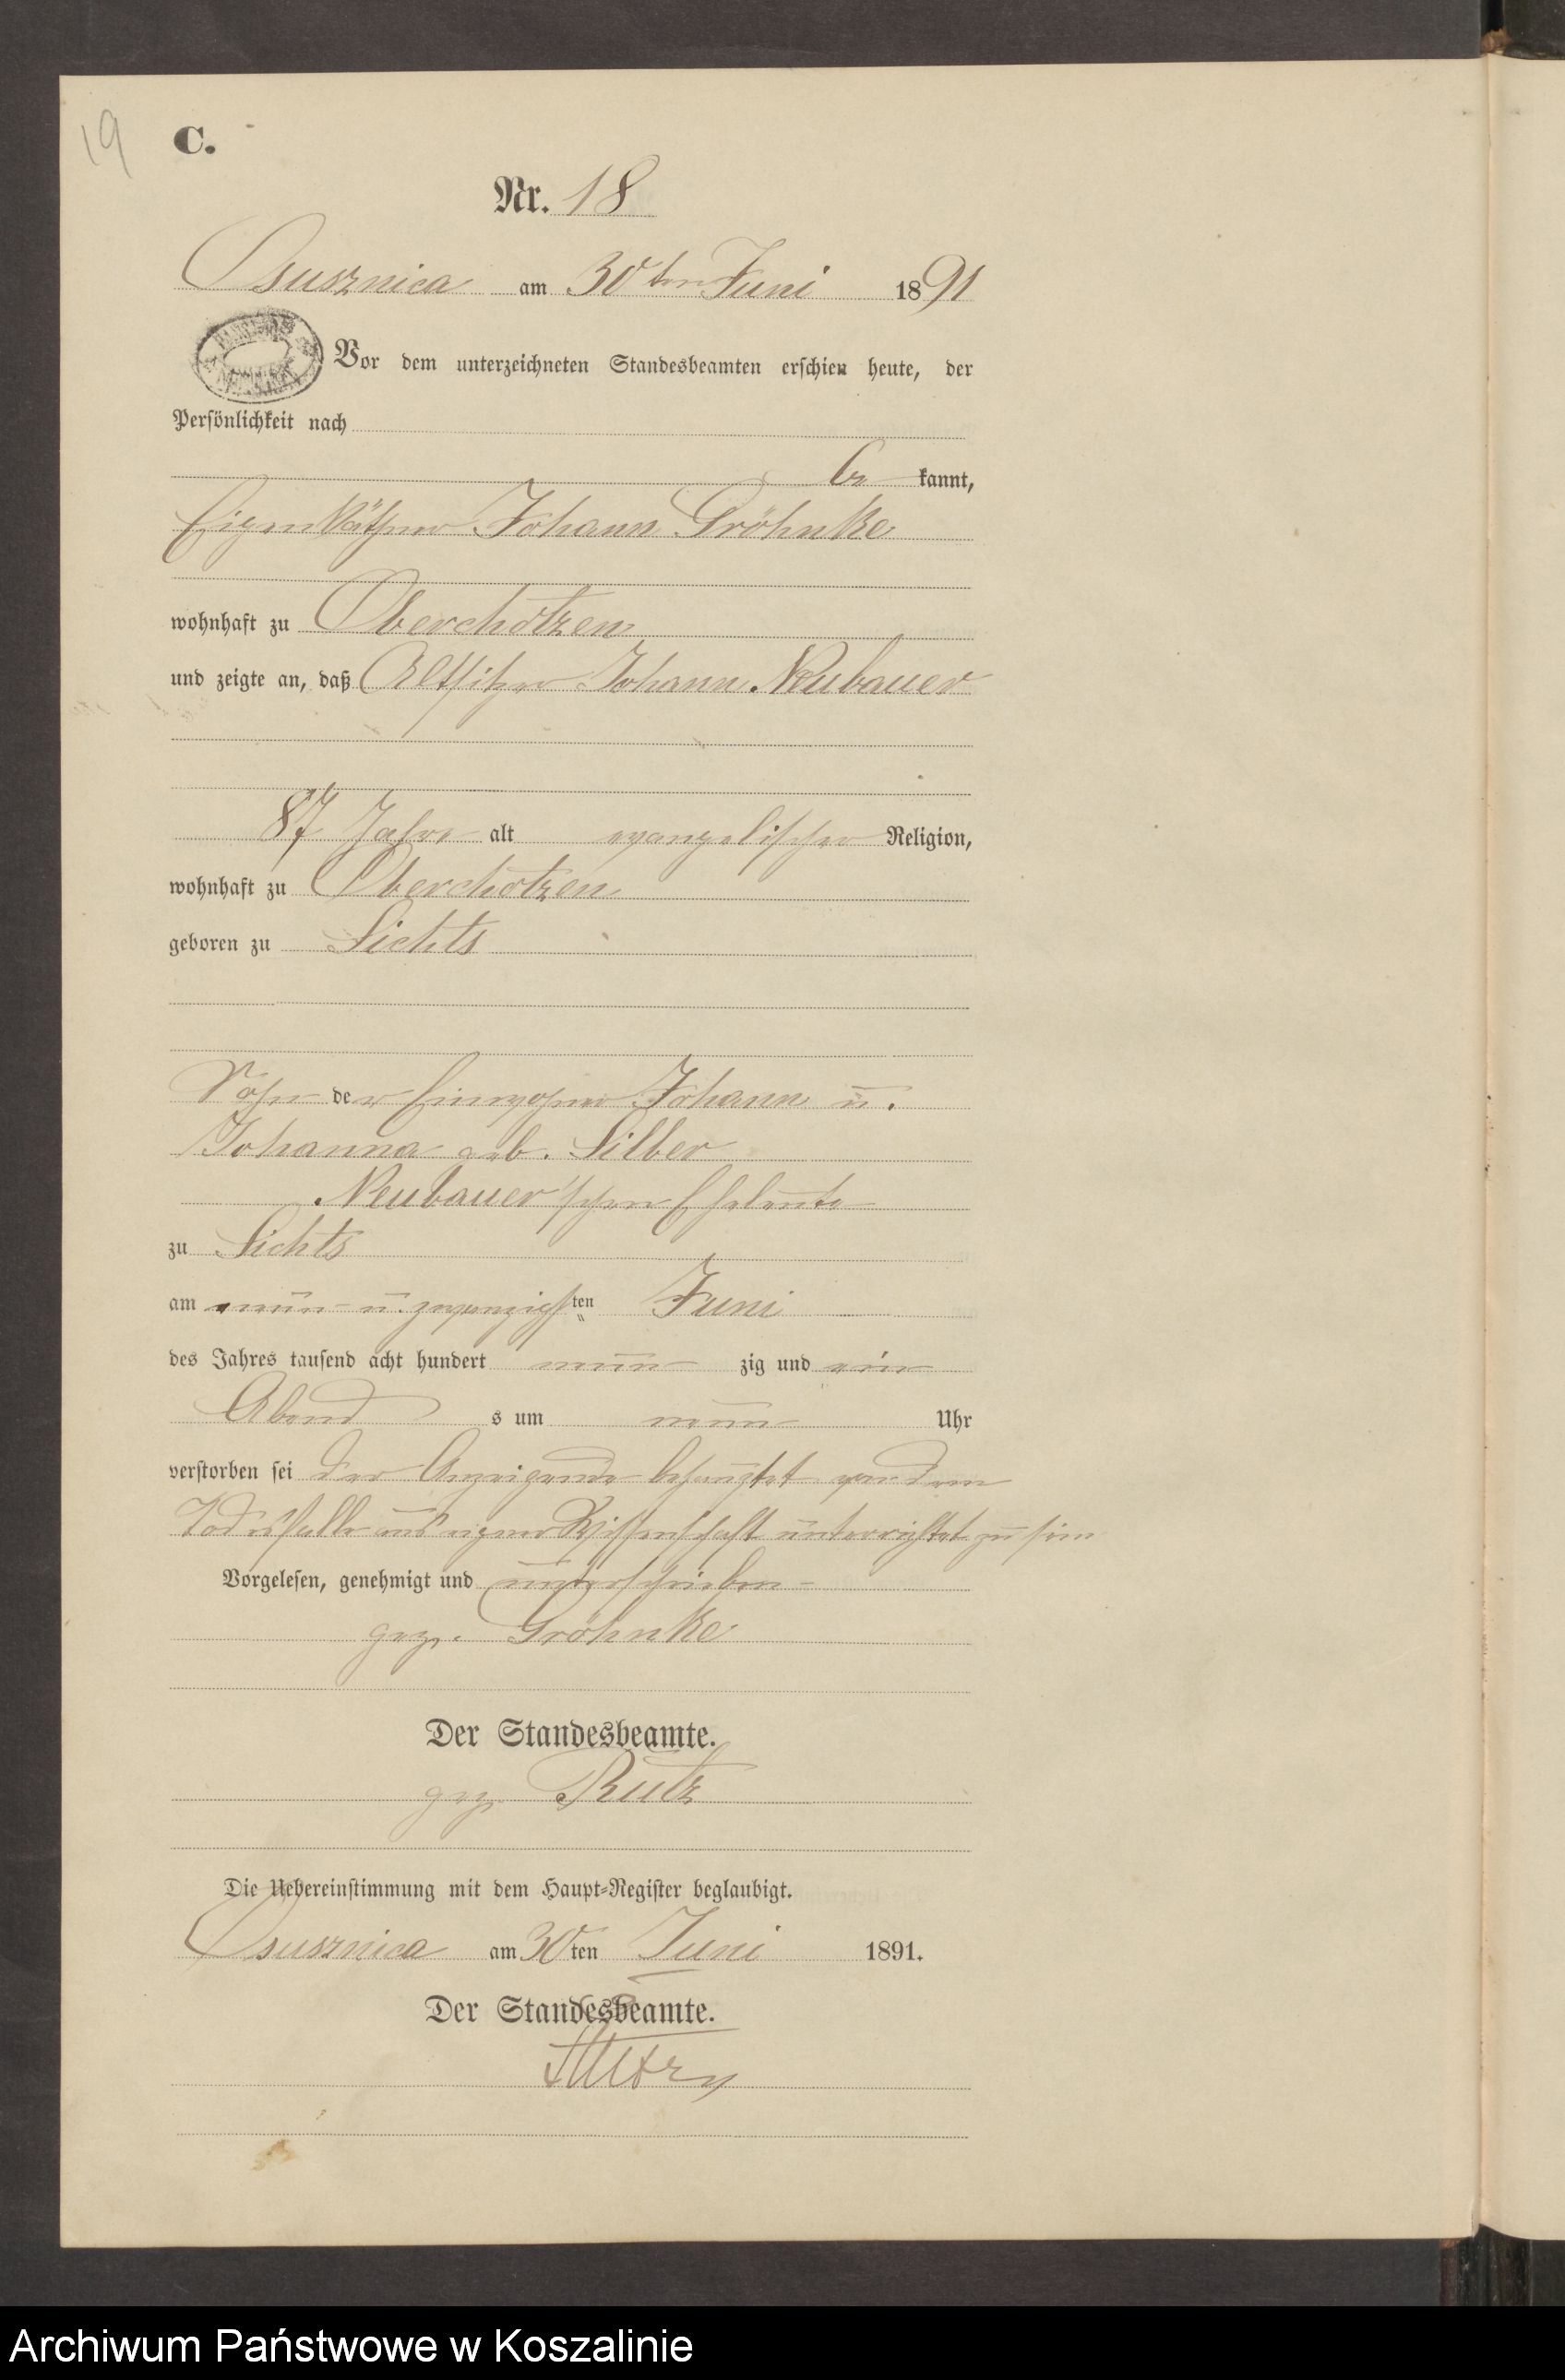 19
C.
Nr. 18
Csusznica am 30ten Juni 1891
Vor dem unterzeichneten Standesbeamten erschien heute, der
Persönlichkeit nach
be kannt,
Eigenkäthner Johann Gröhnke
wohnhaft zu Oberchotzen
und zeigte an, daß Altsitzer Johann Neubauer
87 Jahre alt evangelischer Religion,
wohnhaft zu Oberchotzen
geboren zu Lichts
Sohn der Einwohner Johann u.
Johanna geb. Silber
Neubauer'schen Eheleute
zu Lichts
am neun u. zwanzigsten Juni
des Jahres tausend acht hundert neun zig und ein
Abend s um neun Uhr
verstorben sei der Anzeigende behauptet von dem
Todesfalle aus eigner Wissenschaft unterrichtet zu sein
Vorgelesen, genehmigt und unterschrieben
gez. Gröhnke
Der Standesbeamte.
gez. Rutz
Die Uebereinstimmung mit dem Haupt-Register beglaubigt.
Csusznica am 30ten Juni 1891.
Der Standesbeamte.
Archiwum Państwowe w Koszalinie